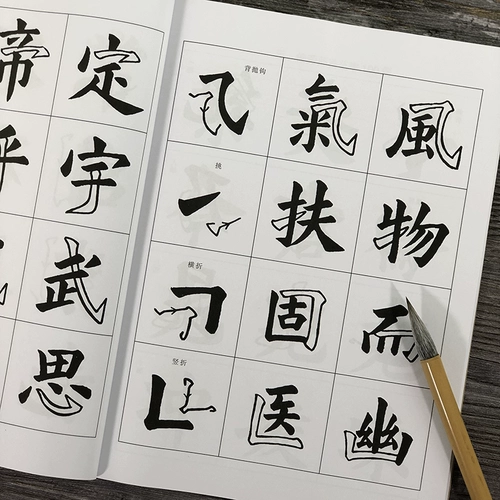 定
宇
武
思
背抛钩
氣 風
挑
扶 物
横折
固 而
竖折
医 幽